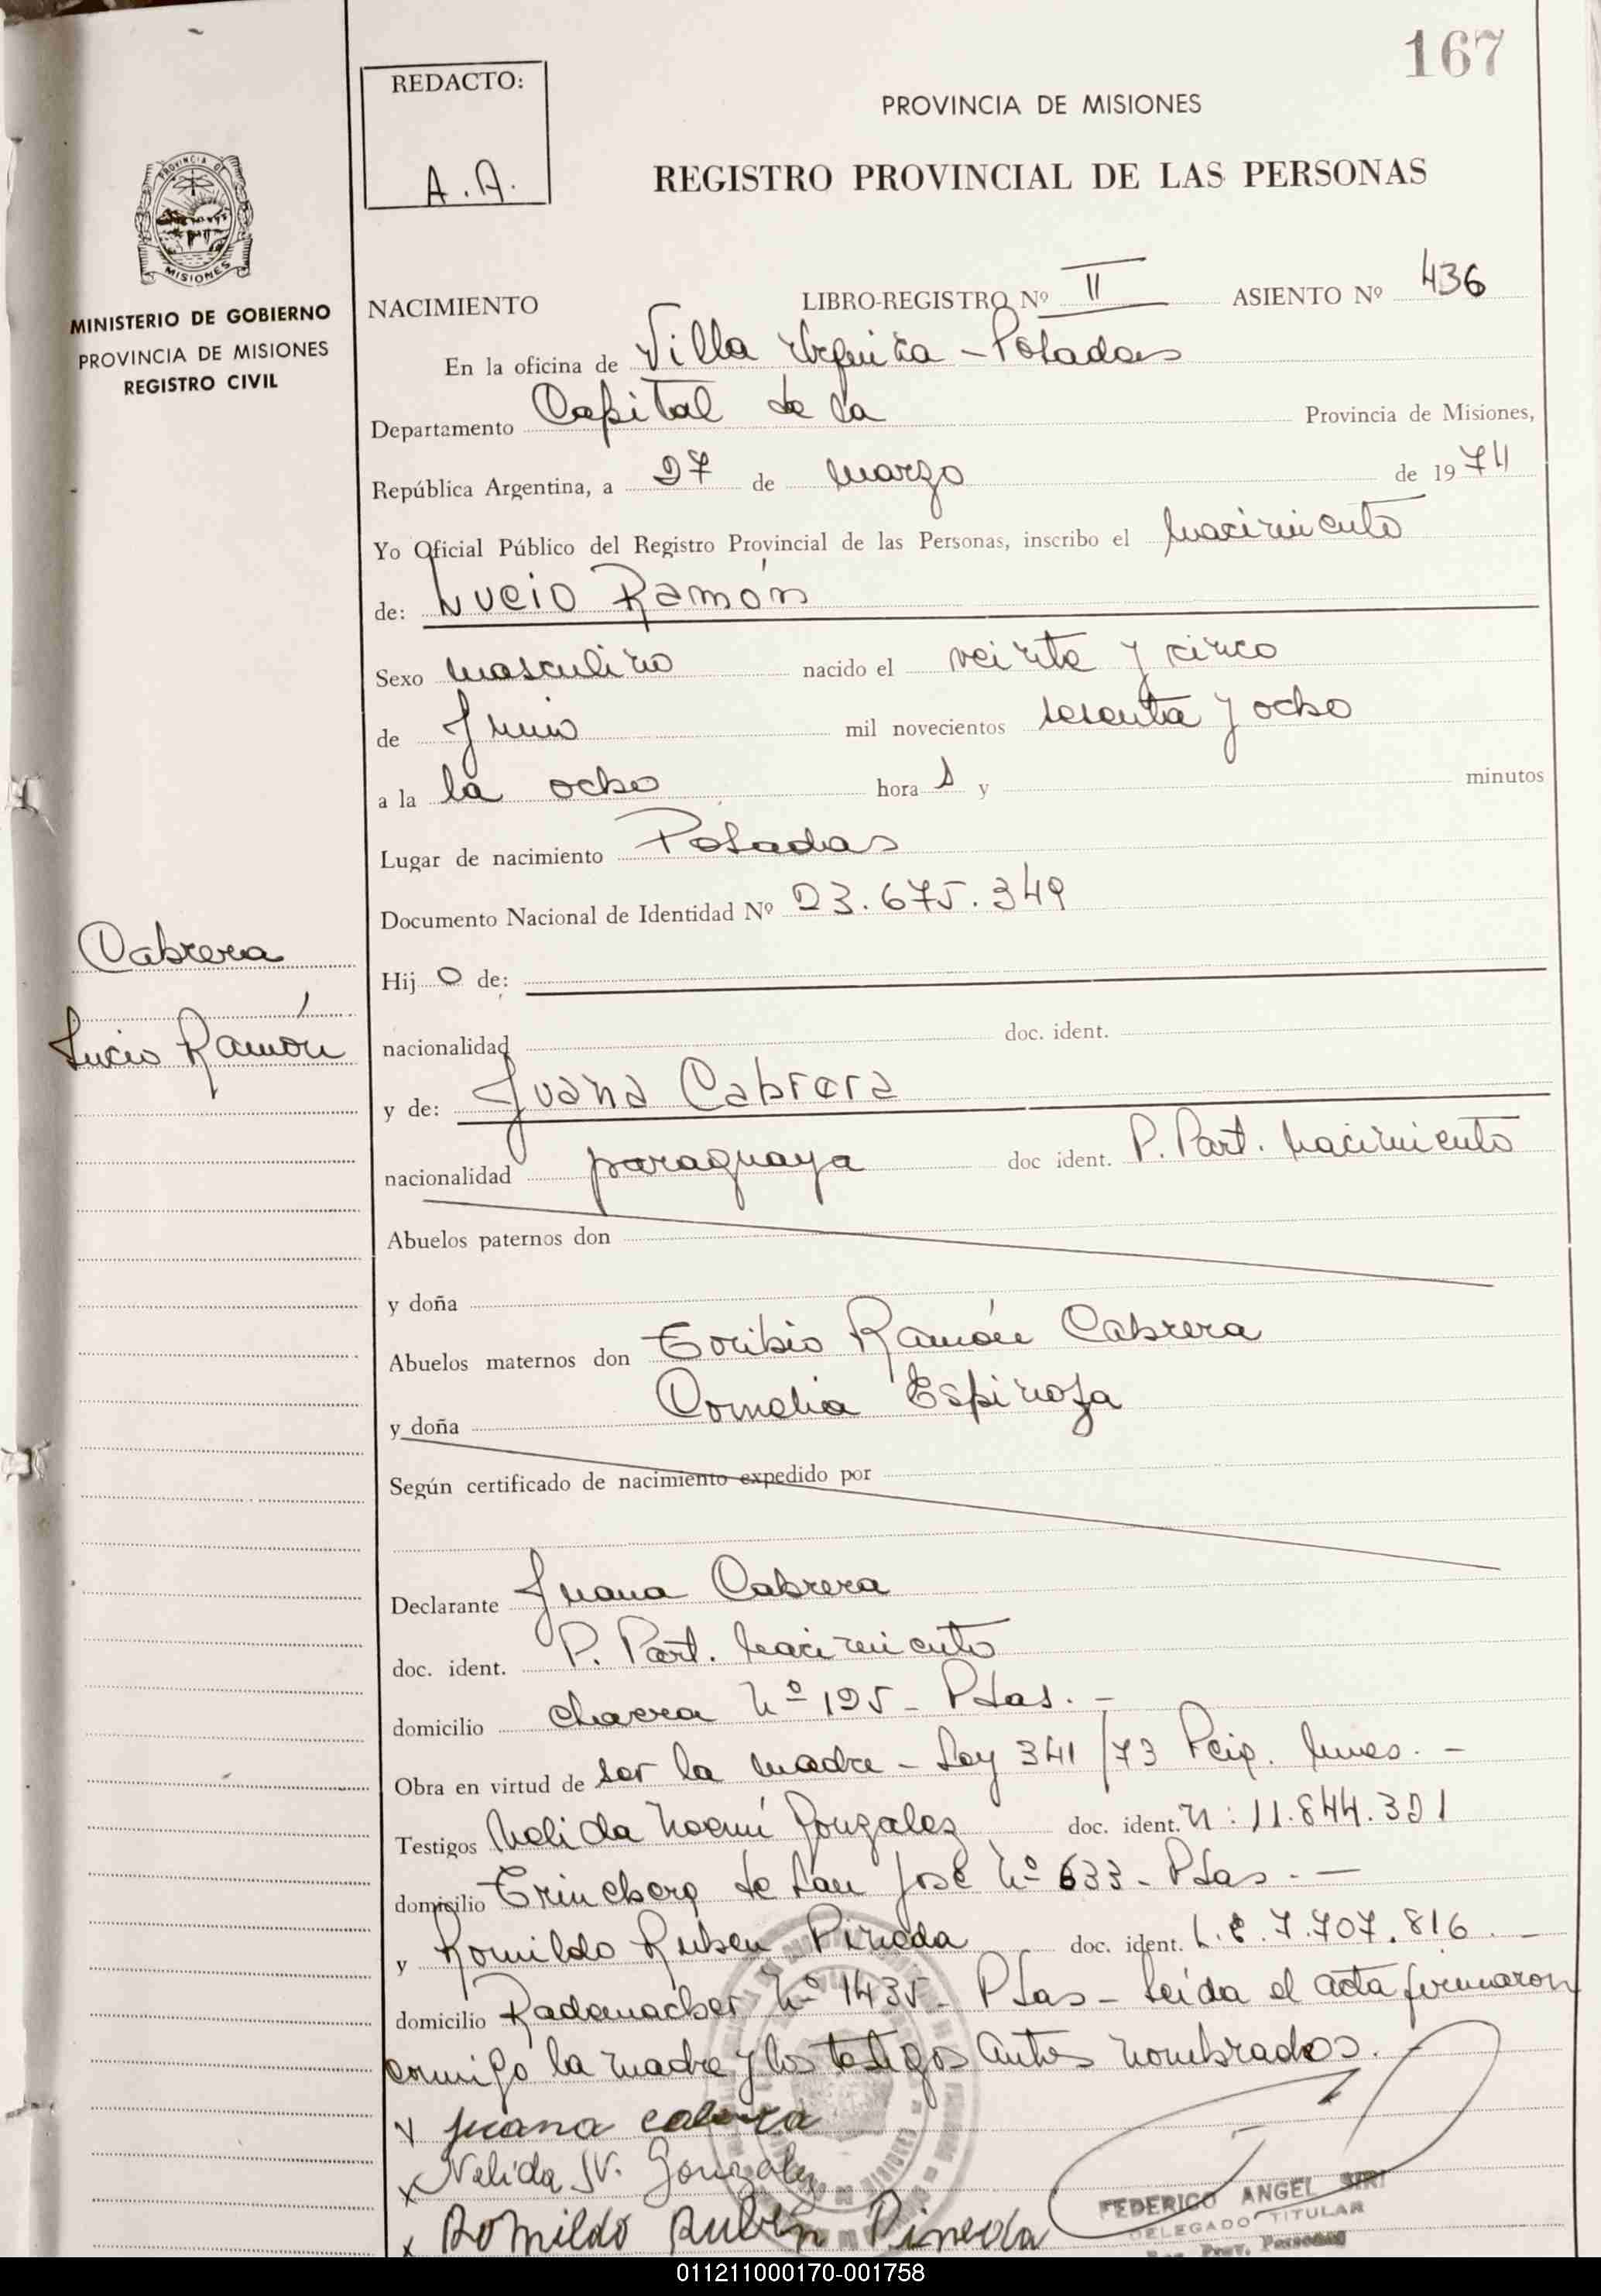 167
REDACTO:
A.A.
PROVINCIA DE MISIONES
REGISTRO PROVINCIAL DE LAS PERSONAS
PROVINCIA DE
MISIONES
MINISTERIO DE GOBIERNO
PROVINCIA DE MISIONES
REGISTRO CIVIL
NACIMIENTO LIBRO-REGISTRO Nº II ASIENTO Nº 436
En la oficina de Villa Urquiza - Posadas
Departamento Capital de la Provincia de Misiones,
República Argentina, a 27 de marzo de 1974
Yo Oficial Público del Registro Provincial de las Personas, inscribo el Nacimiento
de: Lucio Ramón
Sexo masculino nacido el veinte y cinco
de Junio mil novecientos sesenta y ocho
a la la ocho hora s y minutos
Lugar de nacimiento Posadas
Documento Nacional de Identidad Nº 23.675.349
Cabrera
Lucio Ramón
Hij o de:
nacionalidad doc. ident.
y de: Juana Cabrera
nacionalidad paraguaya doc ident. P. Part. Nacimiento
Abuelos paternos don
y doña
Abuelos maternos don Toribio Ramón Cabrera
y doña Cornelia Espinoza
Según certificado de nacimiento expedido por
Declarante Juana Cabrera
doc. ident. P. Part. Nacimiento
domicilio chacra Nº 125 - Pdas. -
Obra en virtud de ser la madre - Ley 341/73 -
Testigos Nelida Noemí Gonzalez doc. ident. N: 11.844.321
domicilio Trinchera de San José Nº 633 - Pdas. -
y Romildo Ruben Pineda doc. ident. L.E. 7.707.816 -
domicilio Rademacher Nº 1435 - Pdas - Leída el acta firmaron
conmigo la madre y los testigos antes nombrados. -
x juana cabrera
x Nelida N. Gonzalez
x Romildo Rubén Pineda
FEDERICO ANGEL SIRI
DELEGADO TITULAR
Reg. Prov. Personas
011211000170-001758